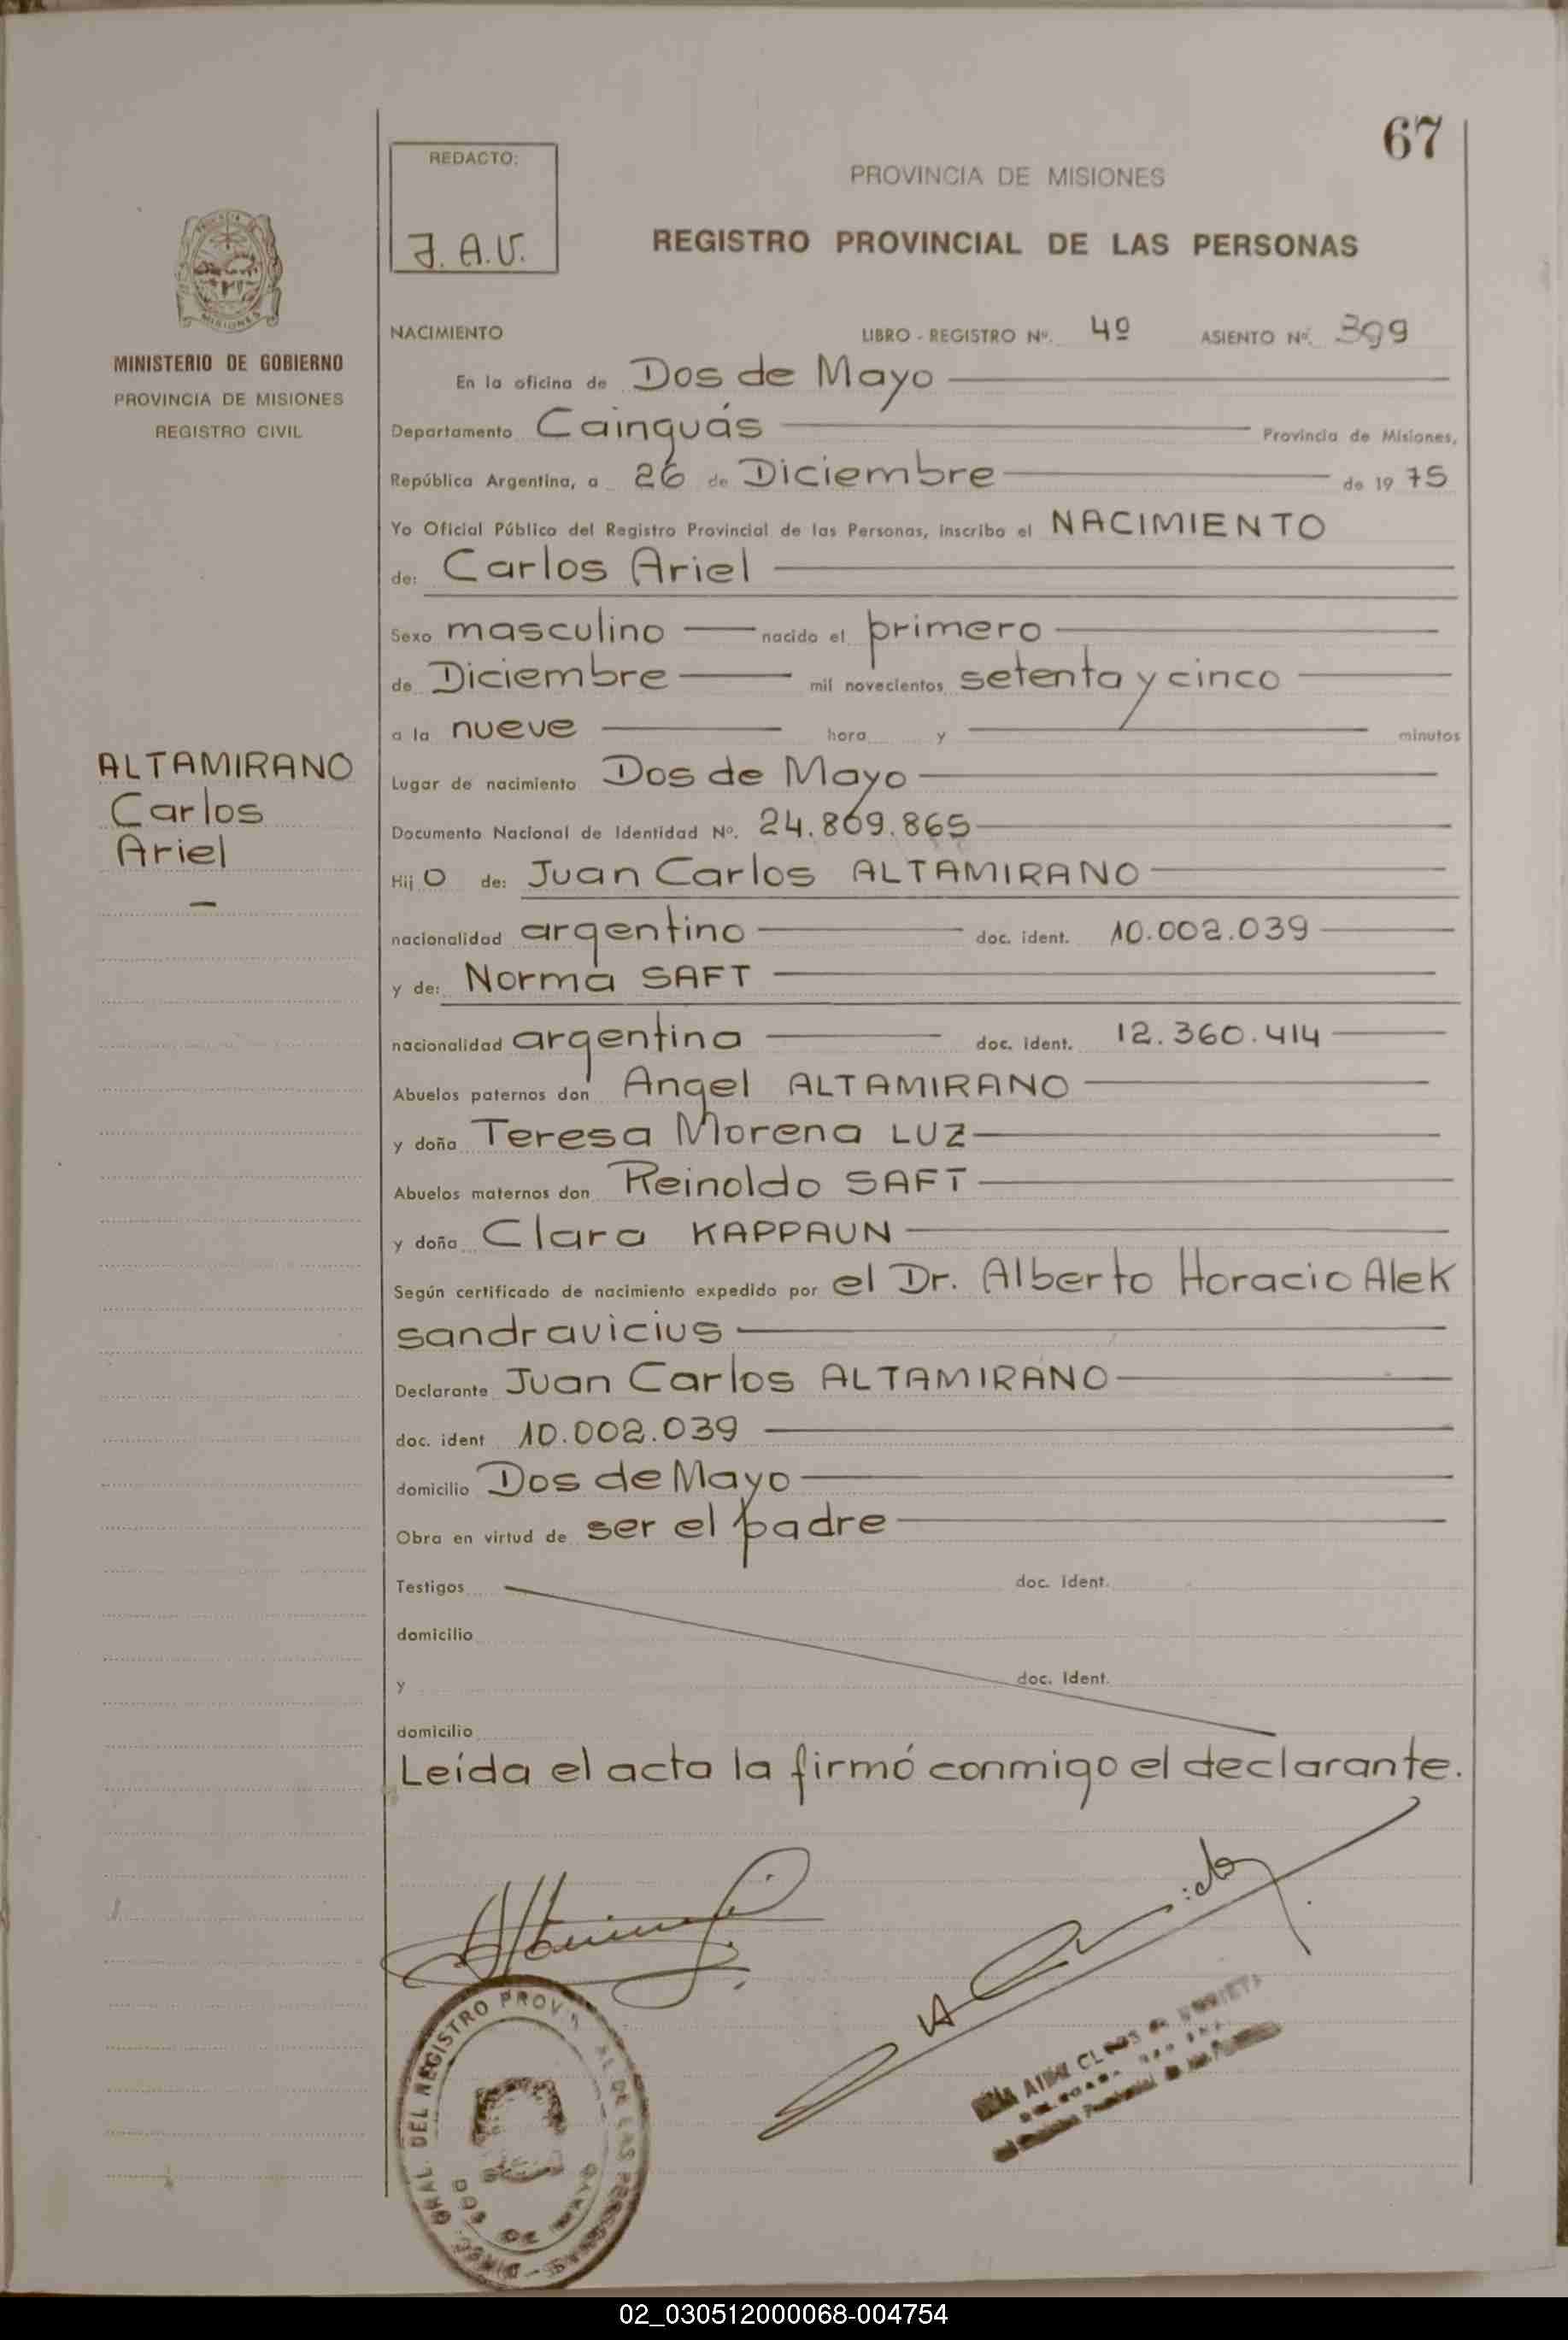 67
REDACTO:
J. A. V.
PROVINCIA DE MISIONES
REGISTRO PROVINCIAL DE LAS PERSONAS
MISIONES
MINISTERIO DE GOBIERNO
PROVINCIA DE MISIONES
REGISTRO CIVIL
NACIMIENTO LIBRO - REGISTRO Nº. 4º ASIENTO Nº. 399
En la oficina de Dos de Mayo
Departamento Cainguás Provincia de Misiones,
República Argentina, a 26 de Diciembre de 19 75
Yo Oficial Público del Registro Provincial de las Personas, inscribo el NACIMIENTO
de: Carlos Ariel
Sexo masculino nacido el primero
de Diciembre mil novecientos setenta y cinco
a la nueve hora y minutos
ALTAMIRANO
Carlos
Ariel
Lugar de nacimiento Dos de Mayo
Documento Nacional de Identidad Nº. 24.869.865
Hij o de: Juan Carlos ALTAMIRANO
nacionalidad argentino doc. ident. 10.002.039
y de: Norma SAFT
nacionalidad argentina doc. ident. 12.360.414
Abuelos paternos don Angel ALTAMIRANO
y doña Teresa Morena LUZ
Abuelos maternos don Reinoldo SAFT
y doña Clara KAPPAUN
Según certificado de nacimiento expedido por el Dr. Alberto Horacio Alek
sandravicius
Declarante Juan Carlos ALTAMIRANO
doc. ident 10.002.039
domicilio Dos de Mayo
Obra en virtud de ser el padre
Testigos doc. ident.
domicilio
y doc. ident.
domicilio
Leída el acta la firmó conmigo el declarante.
GRAL. DEL REGISTRO PROV DE LAS PERSONAS
02_030512000068-004754